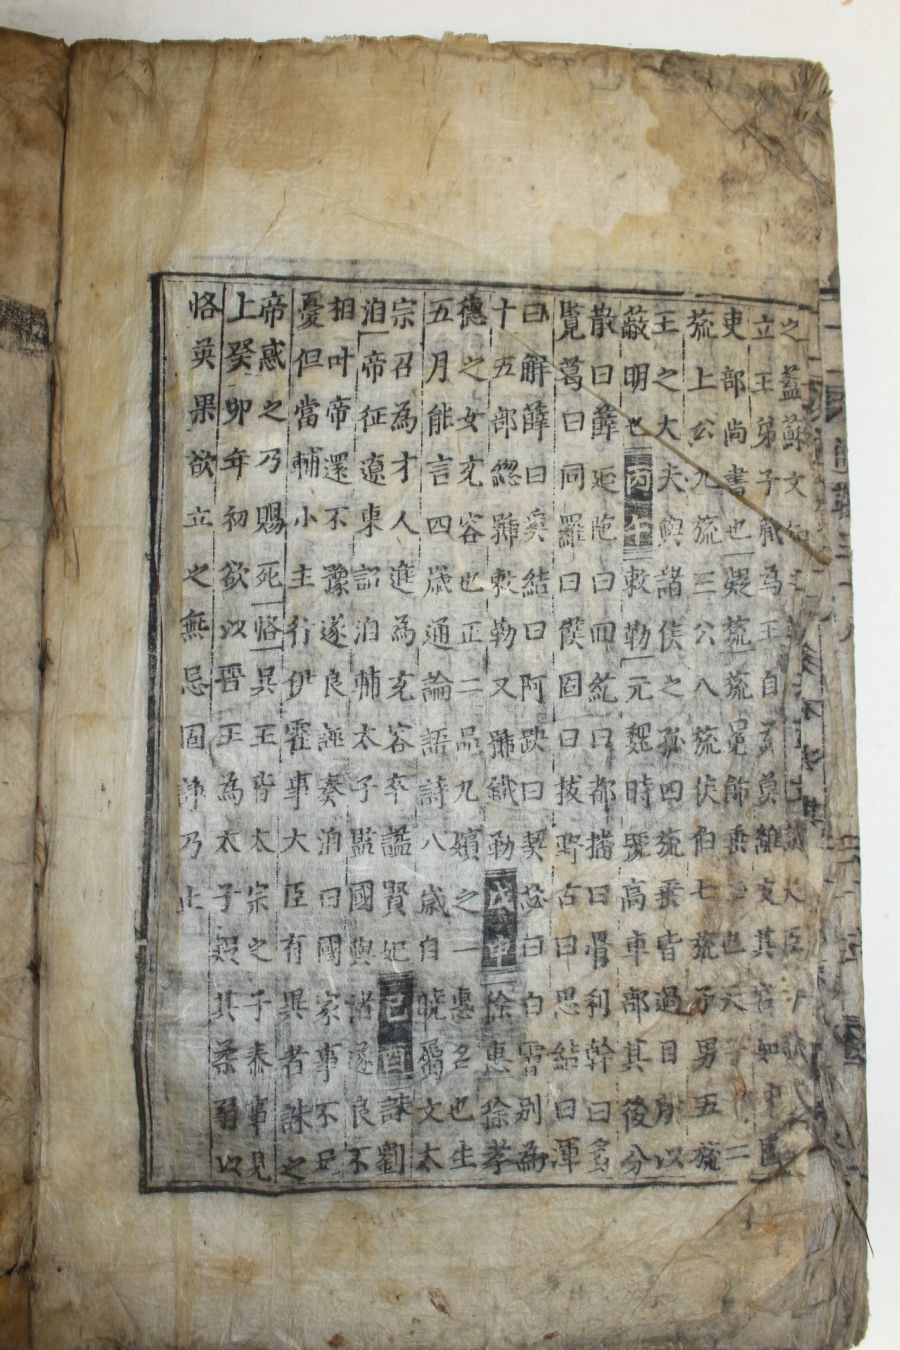 之蓋蘇文
立王弟子臧為王自其官如中國
吏部尚書也疑旒旒冕飾垂也天子十二
旒上公九旒三公八旒侯伯七旒子男五旒
王之大夫與諸侯之孤四旒垂皆過目所以
蔽明也丙午敕勒元魏時號高車部其後分
散曰薛延陀曰回紇曰都播曰骨利幹曰多
覽葛曰同羅曰僕固曰拔野古曰思結曰渾
曰解薛曰奚結曰阿跌曰契苾曰白霫別為
十五部緫號敕勒又號鐵勒戊申徐惠徐孝
德之女充容也正二品九嬪之一惠名也生
五月能言四歲通論語詩八歲自曉屬文太
宗召為才人進為充容卒諡賢妃己酉誅劉
洎帝征遼東詔洎輔太子監國與諸遂良不
相叶帝還不豫遂良誣奏洎曰國家事不足
憂但當輔小主行伊霍事大臣有異者誅之
帝惑之乃賜死恪吳王太宗之子泰事見
上癸卯年初欲以晉王為太子疑其柔弱以
恪英果欲立之無忌固諍乃止